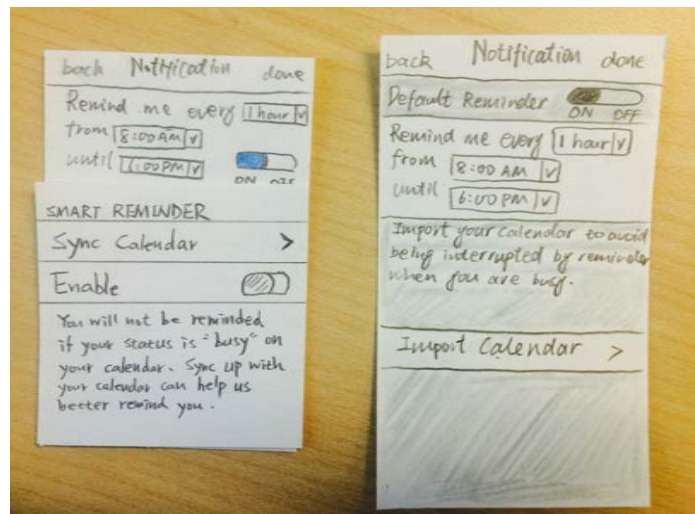 back Notification done
Remind me every 1 hour
from 8:00 AM
until 6:00 PM
ON OFF
SMART REMINDER
Sync Calendar >
Enable
You will not be reminded
if your status is "busy" on
your calendar. Sync up with
your calendar can help us
better remind you.
back Notification done
Default Reminder
ON OFF
Remind me every 1 hour
from 8:00 AM
until 6:00 PM
Import your calendar to avoid
being interrupted by reminder
when you are busy.
Import Calendar >